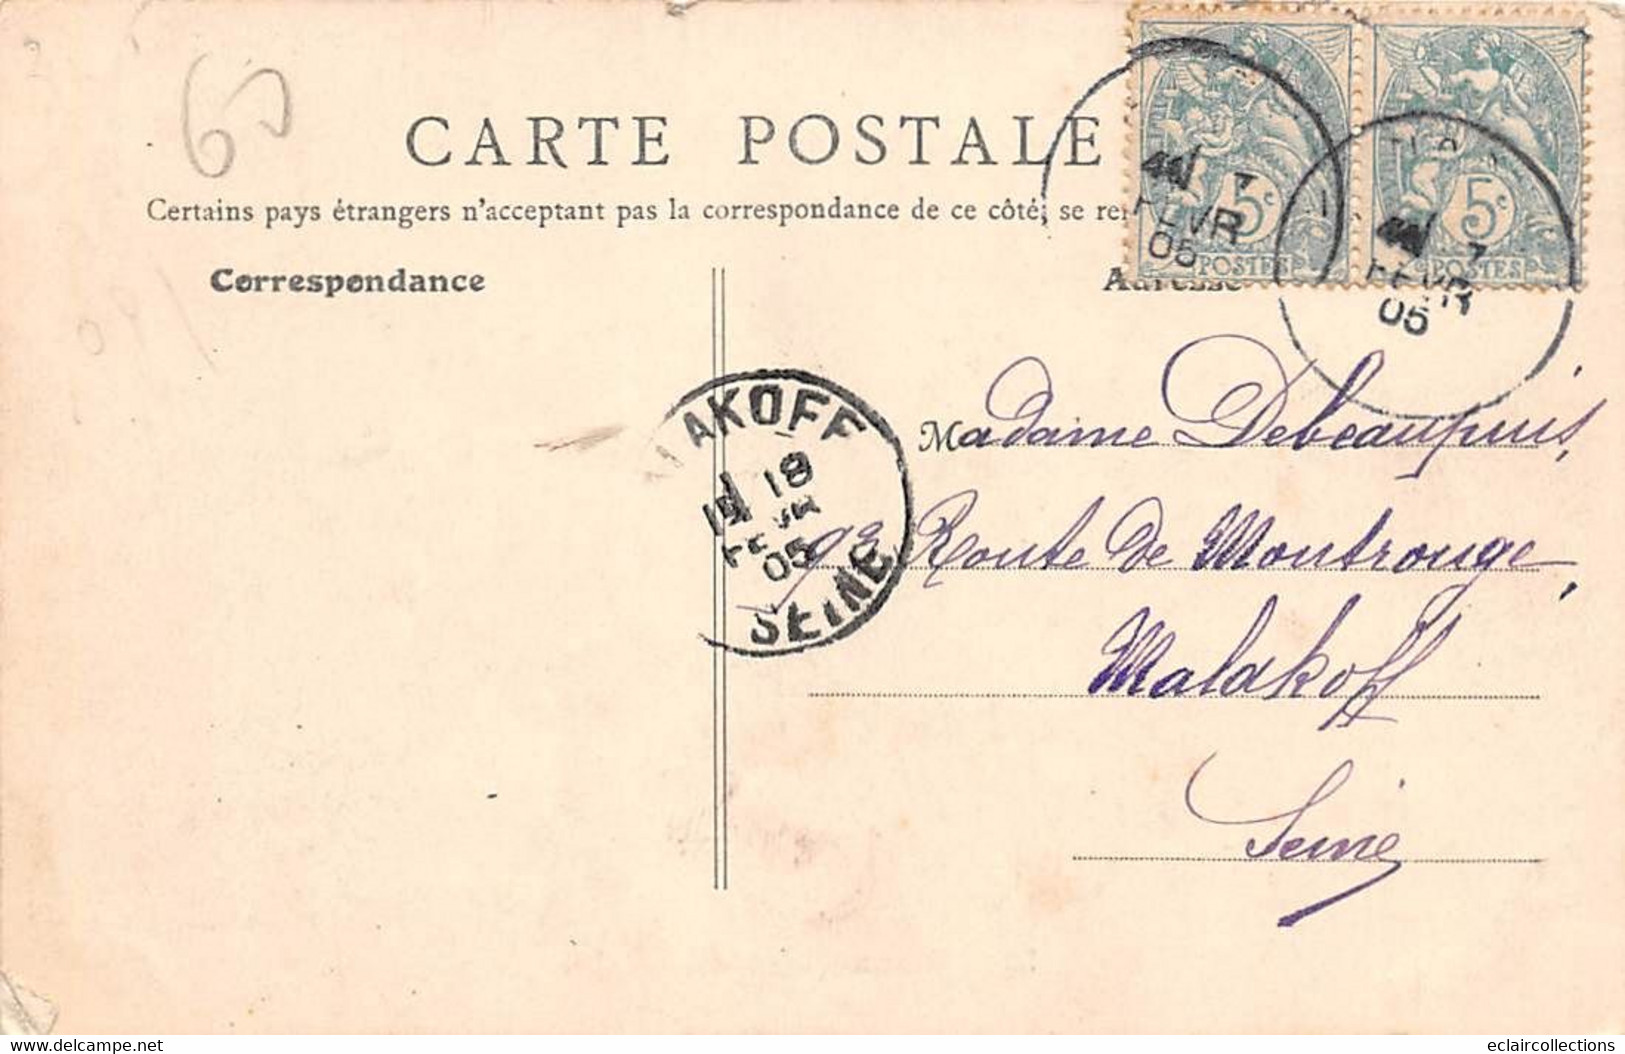 CARTE POSTALE
Certains pays étrangers n'acceptant pas la correspondance de ce côté, se re
Correspondance
Adresse
FEVR
05
5c
POSTES
FEVR
05
5c
POSTES
LAKOFF
18
05
SEINE
Madame Debeaupuis,
Route de Montrouge,
Malakoff
Seine
60
delcampe.net
eclaircollections